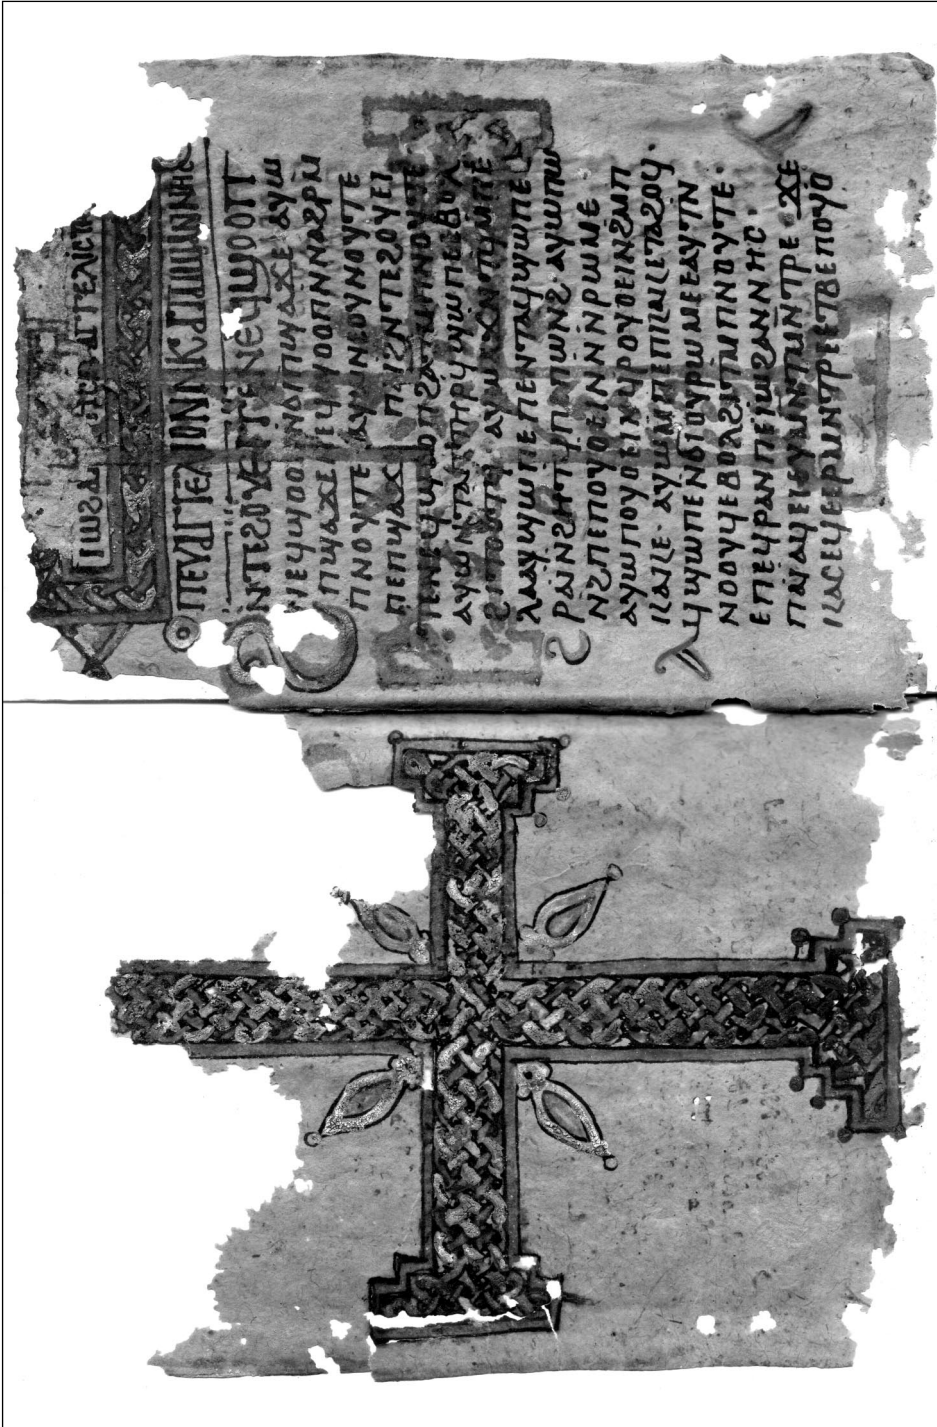 ⲓⲱϩⲁ ⲡⲉⲩⲁⲅⲅⲉⲗⲓⲥⲧ
ⲡⲉⲩⲁⲅⲅⲉⲗⲓⲟⲛⲛⲕⲁ
ⲛⲧⲉϩⲟⲩⲉⲓⲧⲉⲛⲉϥϣⲟⲟⲡ
ⲛⲉϥϣⲟⲟⲡⲛϭⲓⲡϣⲁϫⲉ ⲁⲩⲱ
ⲡϣⲁϫⲉⲛⲉϥϣⲟⲟⲡⲛⲛⲁϩⲣⲙ̄
ⲡⲛⲟⲩⲧⲉ ⲁⲩⲱⲛⲉⲩⲛⲟⲩⲧⲉ
ⲡⲉⲡϣⲁϫⲉ ⲡⲁⲓϩⲛⲧⲉϩⲟⲩⲉⲓ
ⲧⲉⲛⲉϥϣⲟⲟⲡϩⲁⲧⲙⲡⲛⲟⲩⲧⲉ
ⲁⲩⲱⲛⲧⲁⲡⲧⲏⲣϥϣⲱⲡⲉⲉⲃⲟⲗ
ϩⲓⲧⲟⲟⲧϥ ⲁⲩⲱⲁϫⲛⲧϥⲙⲡⲉ
ⲗⲁⲁⲩϣⲱⲡⲉⲡⲉⲛⲧⲁϥϣⲱⲡⲉ
ϩⲣⲁⲓⲛϩⲏⲧϥⲡⲉⲡⲱⲛϩ· ⲁⲩⲱⲡⲱ
ⲛϩⲡⲉⲡⲟⲩⲟⲉⲓⲛⲛⲛⲣⲱⲙⲉ
ⲁⲩⲱⲡⲟⲩⲟⲉⲓⲛⲉϥⲣⲟⲩⲟⲉⲓⲛϩⲙⲡ
ⲕⲁⲕⲉ· ⲁⲩⲱⲙⲡⲉⲡⲕⲁⲕⲉⲧⲁϩⲟϥ·
ⲁϥϣⲱⲡⲉⲛϭⲓⲟⲩⲣⲱⲙⲉⲉⲁⲩⲧⲛ
ⲛⲟⲟⲩϥⲉⲃⲟⲗϩⲓⲧⲙⲡⲛⲟⲩⲧⲉ·
ⲉⲡⲉϥⲣⲁⲛⲡⲉⲓⲱϩⲁⲛⲛⲏⲥ·
ⲡⲁⲓⲁϥⲉⲓⲉⲩⲙⲛⲧⲙⲛⲧⲣⲉ· ϫⲉ
ⲕⲁⲥⲉϥⲉⲣⲙⲛⲧⲣⲉⲉⲧⲃⲉⲡⲟⲩⲟ